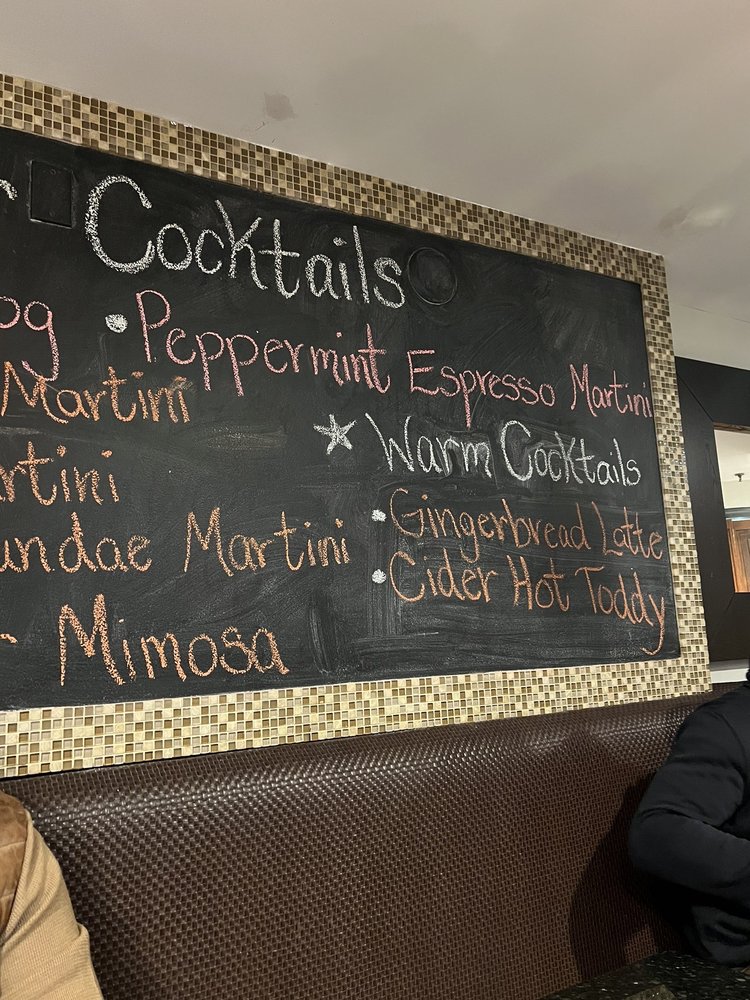 Cocktails
og • Peppermint Espresso Martini
Martini
rtini
undae Martini
Mimosa
* Warm Cocktails
• Gingerbread Latte
• Cider Hot Toddy